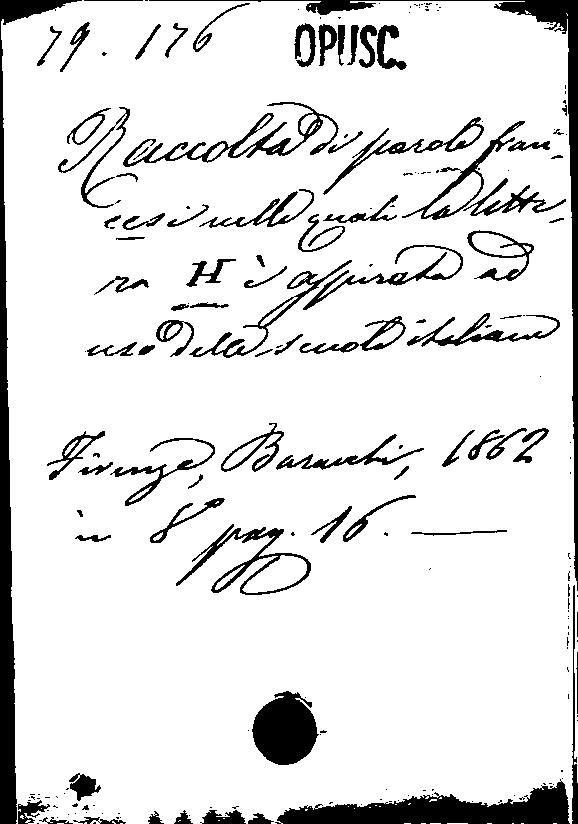 79. 176 OPUSC.
Raccolta di parole fran-
cesi nelle quali la lette-
ra H è aspirata ad
uso delle scuole italiane
Firenze, Baracchi, 1862
in 8° pag. 16. —